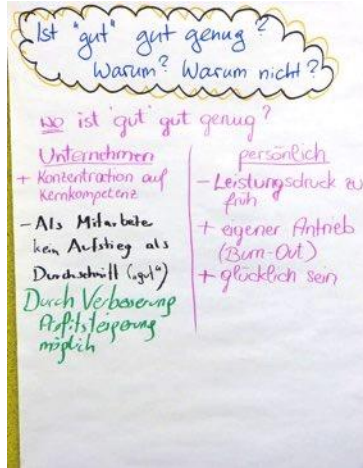 Ist "gut" gut genug?
Warum? Warum nicht?
Wo ist "gut" gut genug?
Unternehmen
+ Konzentration auf
Kernkompetenz
- Als Mitarbete
kein Aufstieg als
Durchschnitt ("gut")
Durch Verbesserung
Profitsteigerung
möglich
persönlich
- Leistungsdruck zu
früh
+ eigener Antrieb
(Burn-Out)
+ glücklich sein